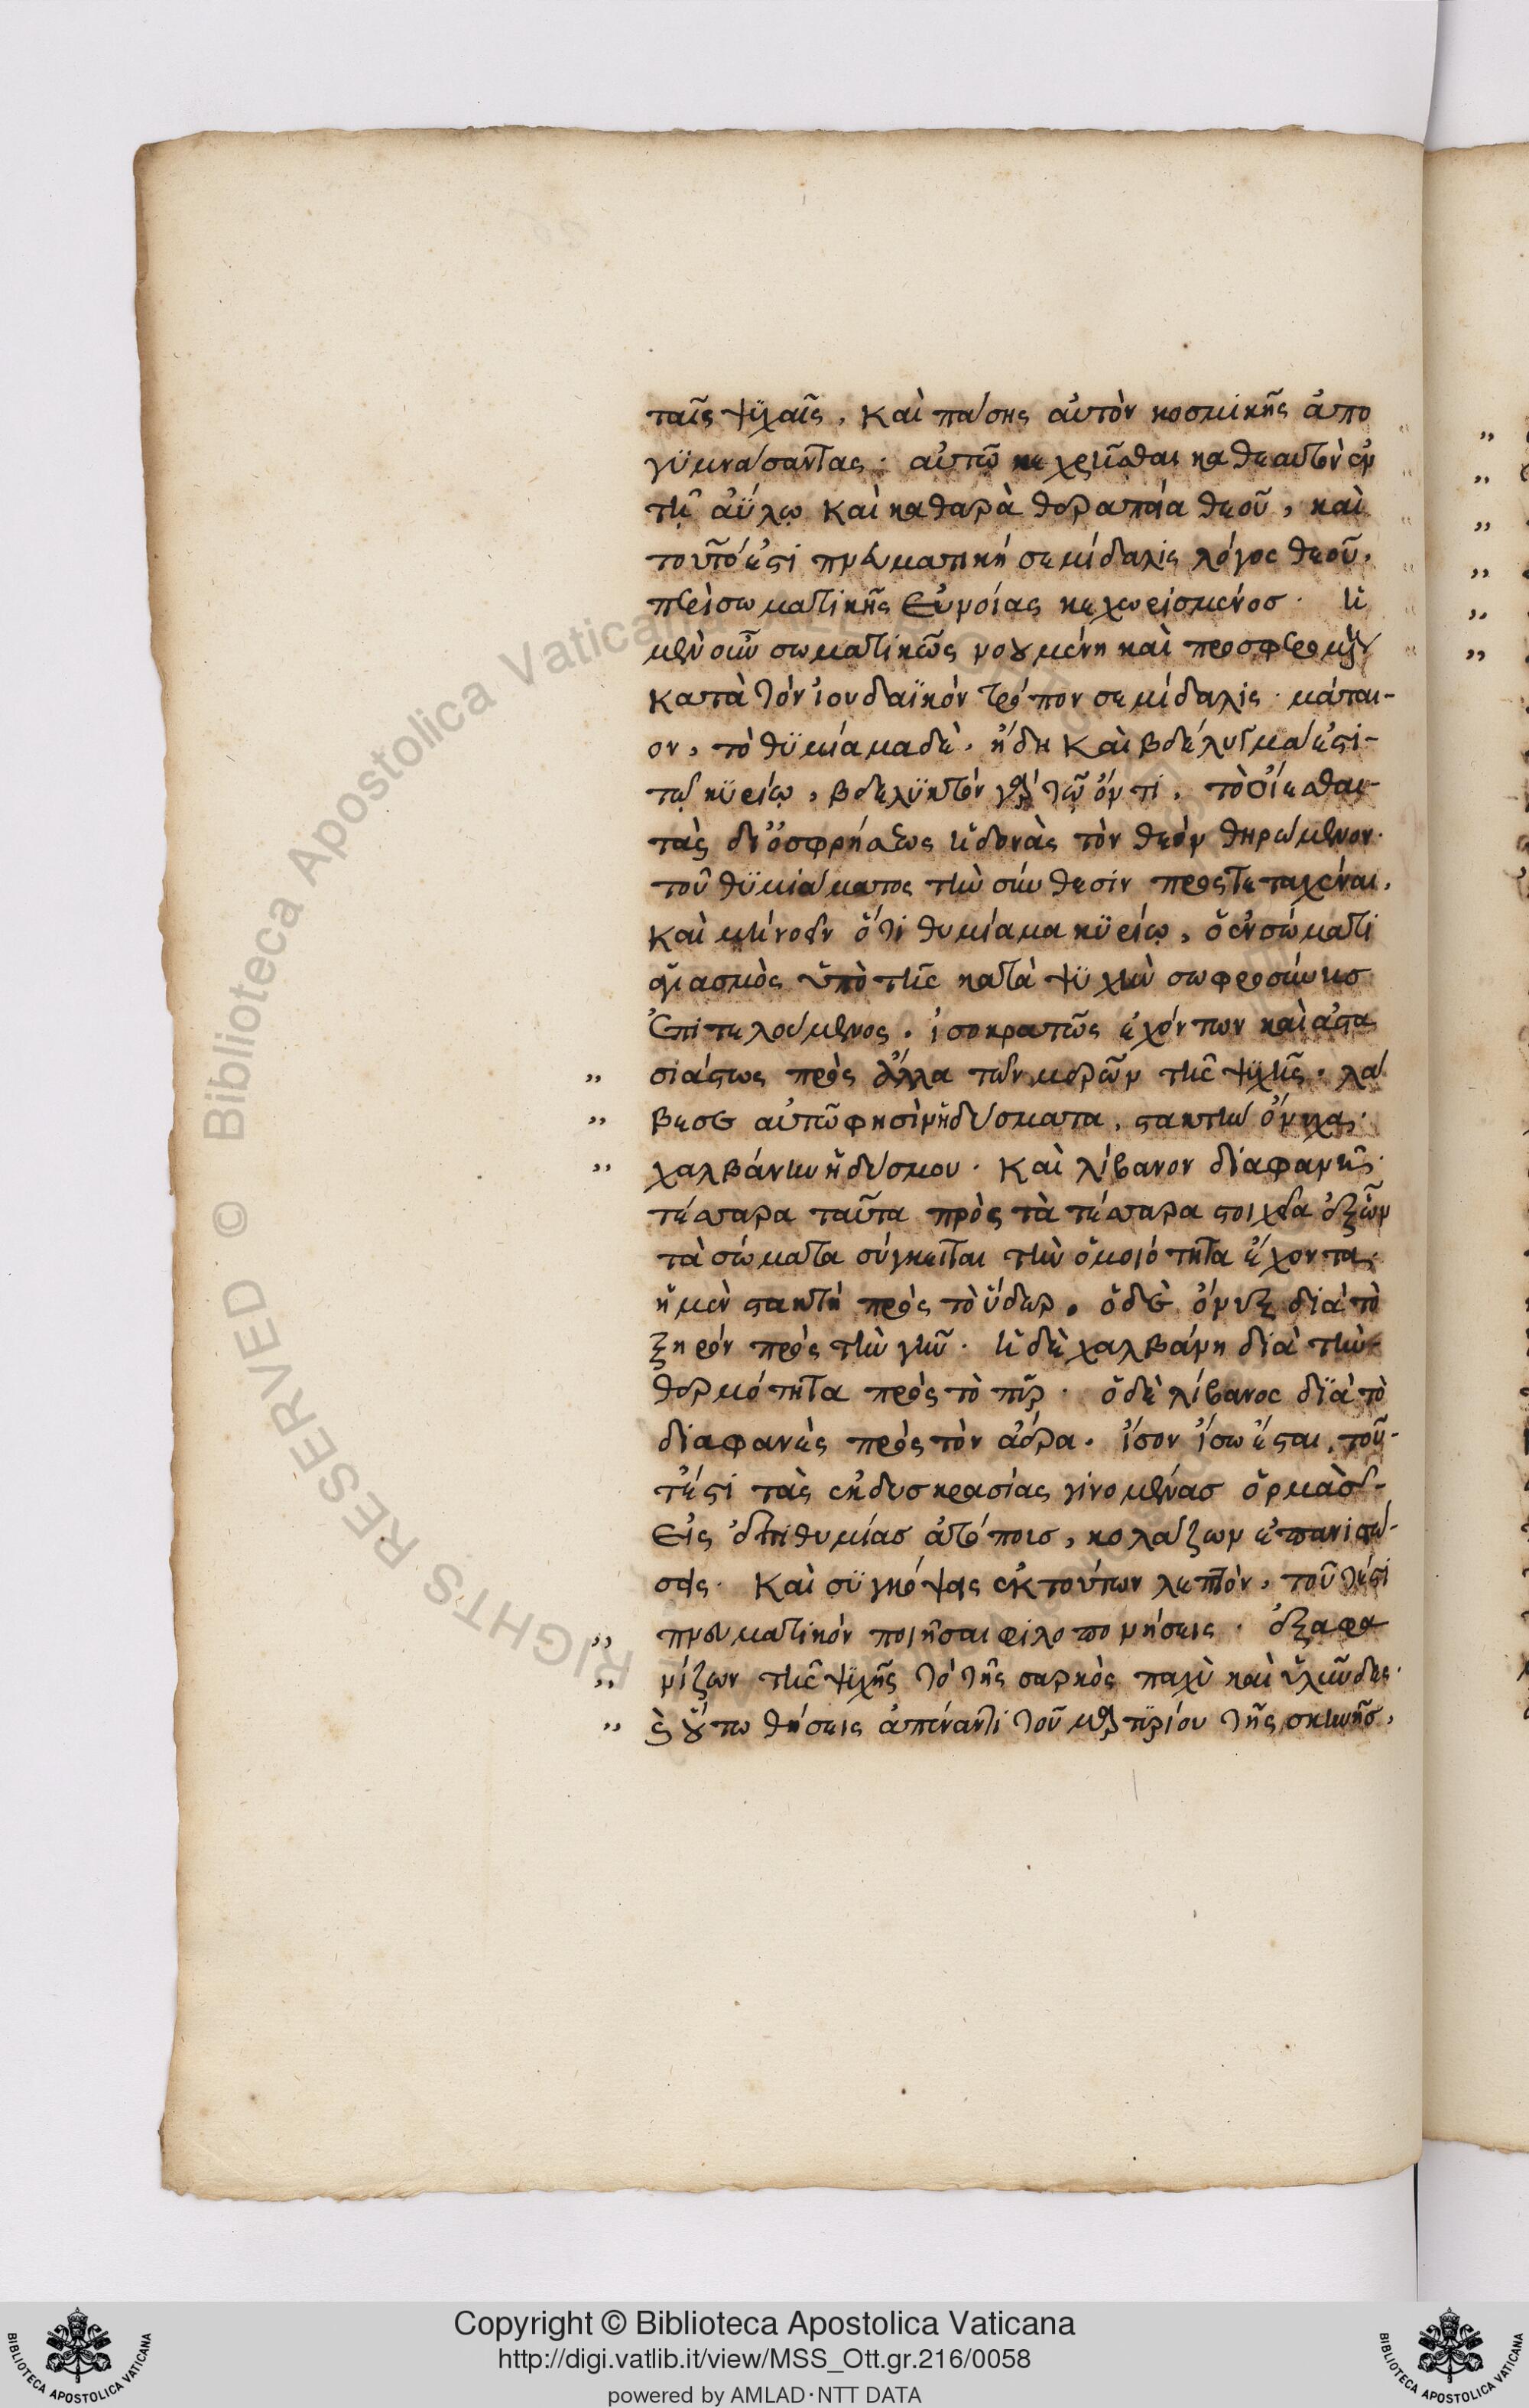 ταῖς ψϋχαῖς, καὶ πάσης αὐτὸν κοσμικῆς ἀπο
γϋμνάσαντας· αὐτῷ κεχρῆσθαι καθεαυτὸν ἐν
τῇ ἀΰλῳ καὶ καθαρὰ θεραπεία θεοῦ, καὶ
τοῦτό ἐστι πνευματικὴ σεμίδαλις λόγος θεοῦ,
περὶ σωματικῆς ἐννοίας κεχωρισμένος. ἡ
μὲν οὖν σωματικῶς νοουμένη καὶ προσφερομένη
κατὰ τὸν ἰουδαϊκὸν τρόπον σεμίδαλις· μάται-
ον, τὸ θϋμίαμα δὲ, ἤδη καὶ βδέλυγμά ἐστι-
τῷ κϋρίῳ, βδελϋκτὸν γὰρ τῷ ὄντι, τὸ οἴεσθαι-
τὰς δι' ὀσφρήσεως ἡδονὰς τὸν θεὸν θηρώμενον.
τοῦ θϋμιάματος τὴν σύνθεσιν προστεταχέναι,
καὶ μὴ νοεῖν ὅτι θυμίαμα κϋρίῳ, ὁ ἐν σώματι
ἁγιασμὸς ὑπὸ τῆς κατὰ ψϋχὴν σωφροσύνης
ἐπιτελούμενος. ἰσοκρατῶς ἐχόντων καὶ ἀστα
,, σιάστως πρὸς ἄλλα τῶν μερῶν τῆς ψϋχῆς. λά
,, βε σὲ αὐτῷ φησὶν ἡδύσματα, στακτὴν ὄνυχα,
,, χαλβάνην ἡδύσμου. καὶ λίβανον διαφανῆ.
τέσσαρα ταῦτα πρὸς τὰ τέσσαρα στοιχεῖα ἐξ ὧν
τὰ σώματα σύγκειται τὴν ὁμοιότητα ἔχοντα.
ἡ μὲν στακτὴ πρὸς τὸ ὕδωρ. ὁ δὲ ὄνυξ διὰ τὸ
ξηρὸν πρὸς τὴν γῆν. ἡ δὲ χαλβάνη διὰ τὴν-
θερμότητα πρὸς τὸ πῦρ. ὁ δὲ λίβανος δϊὰ τὸ
διαφανὲς πρὸς τὸν ἀέρα. ἴσον ἴσω ἔσται, τοῦ-
τέστι τὰς ἐκ δυσκρασίας γινομένας ὁρμὰς-
εἰς ἐπιθυμίας ἀτόποις, κολάζων ἐπανισώ-
σεις. καὶ σϋγκόψεις ἐκ τούτων λεπτὸν, τοῦτέστι
,, πνευματικὸν ποιῆσαι φιλοπονήσεις. ἐξαφα
,, νίζων τῆς ψϋχῆς τὸ τῆς σαρκὸς παχὺ καὶ ὑλῶδες.
,, καὶ οὕτω θήσεις ἀπέναντι τοῦ μαρτϋρίου τῆς σκηνῆς,
Copyright © Biblioteca Apostolica Vaticana
http://digi.vatlib.it/view/MSS_Ott.gr.216/0058
powered by AMLAD·NTT DATA